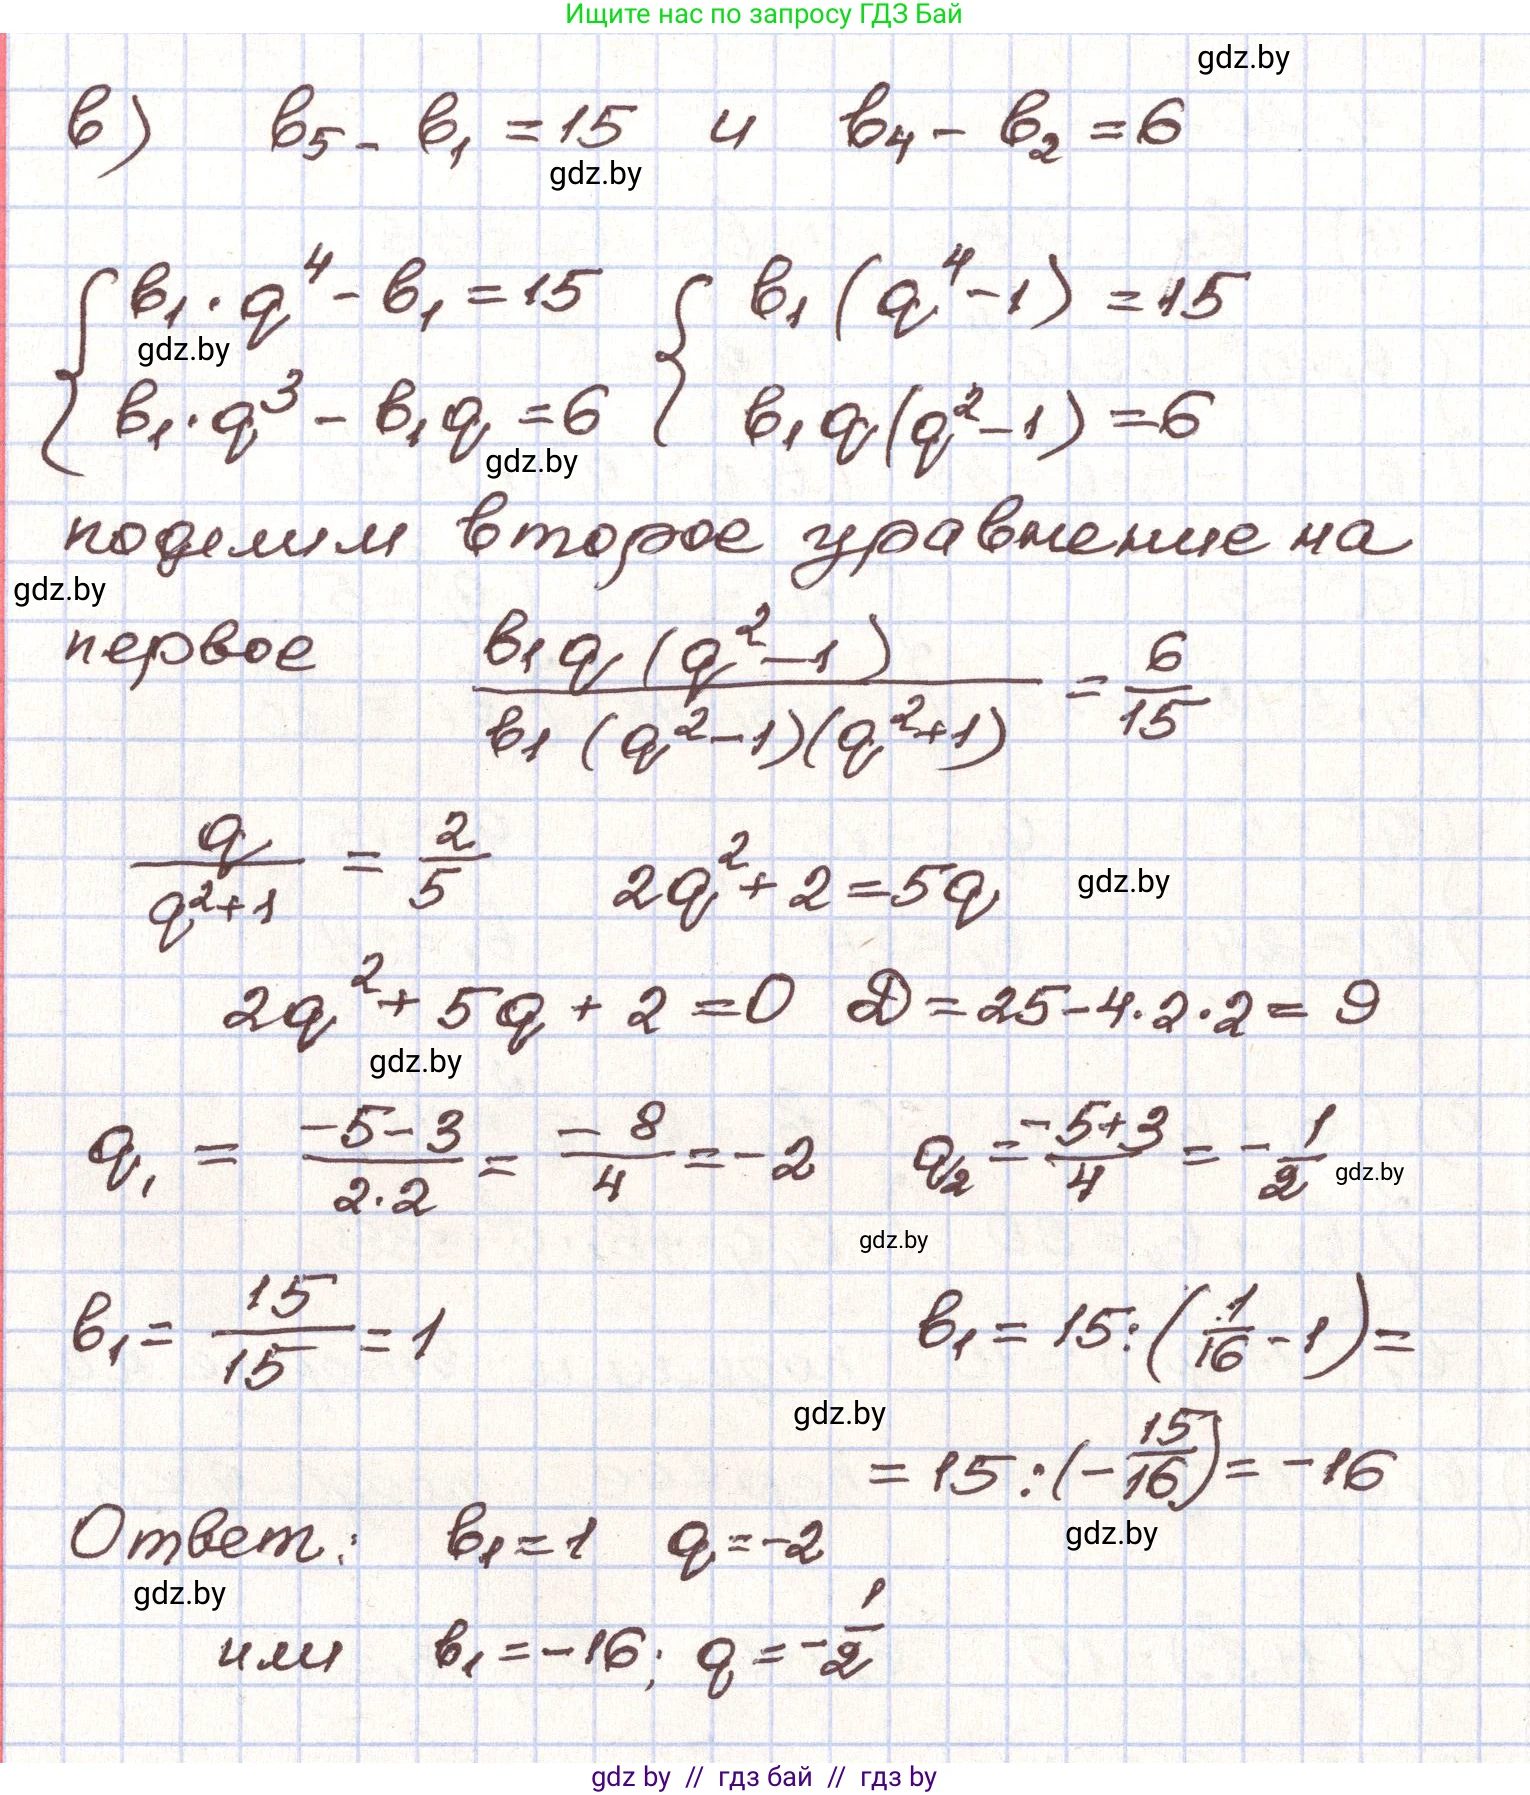 Ищите нас по запросу ГДЗ Бай
gdz.by
в) b₅ - b₁ = 15 и b₄ - b₂ = 6
gdz.by
{ b₁ · q⁴ - b₁ = 15 { b₁ (q⁴ - 1) = 15
gdz.by
b₁ · q³ - b₁q = 6 b₁q (q² - 1) = 6
gdz.by
поделим второе уравнение на
gdz.by
первое b₁q (q² - 1) / b₁ (q² - 1)(q² + 1) = 6/15
q/(q² + 1) = 2/5 2q² + 2 = 5q gdz.by
2q² + 5q + 2 = 0 D = 25 - 4 · 2 · 2 = 9
gdz.by
q₁ = (-5 - 3)/(2 · 2) = -8/4 = -2 q₂ = (-5 + 3)/4 = -1/2 gdz.by
gdz.by
b₁ = 15/15 = 1 b₁ = 15 : (1/16 - 1) =
gdz.by
= 15 : (-15/16) = -16
gdz.by
Ответ: b₁ = 1 q = -2
gdz.by
или b₁ = -16; q = -1/2
gdz by // гдз бай // гдз by